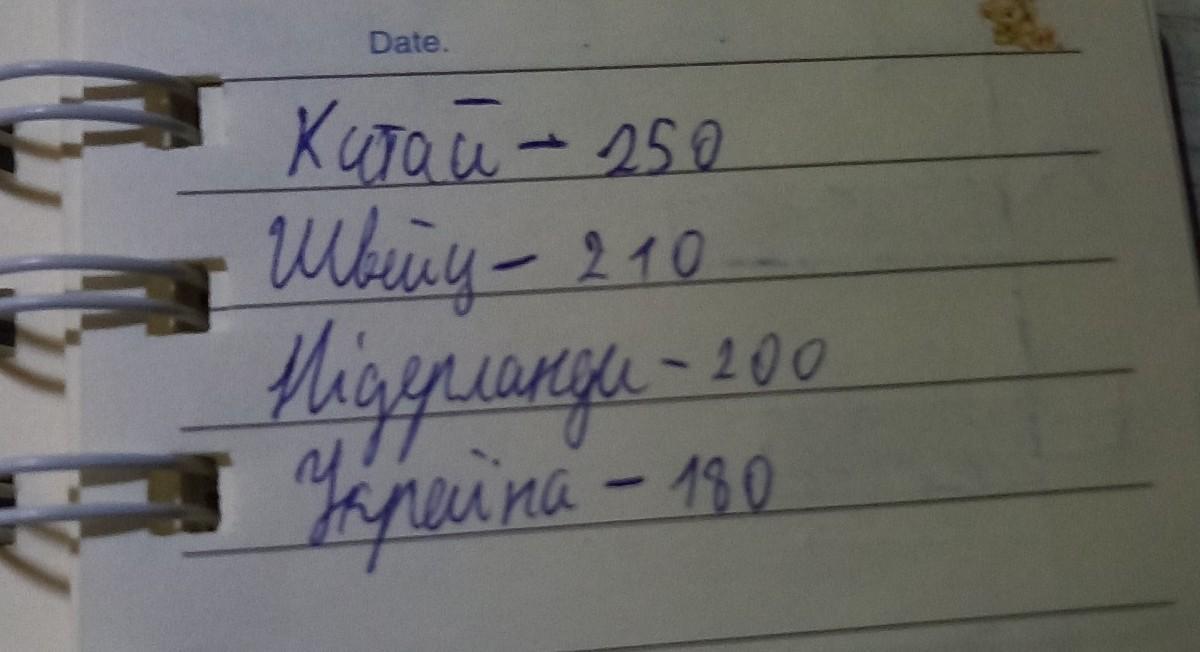 Date.
Китай - 250
Швейц - 210
Нідерланди - 200
Україна - 180